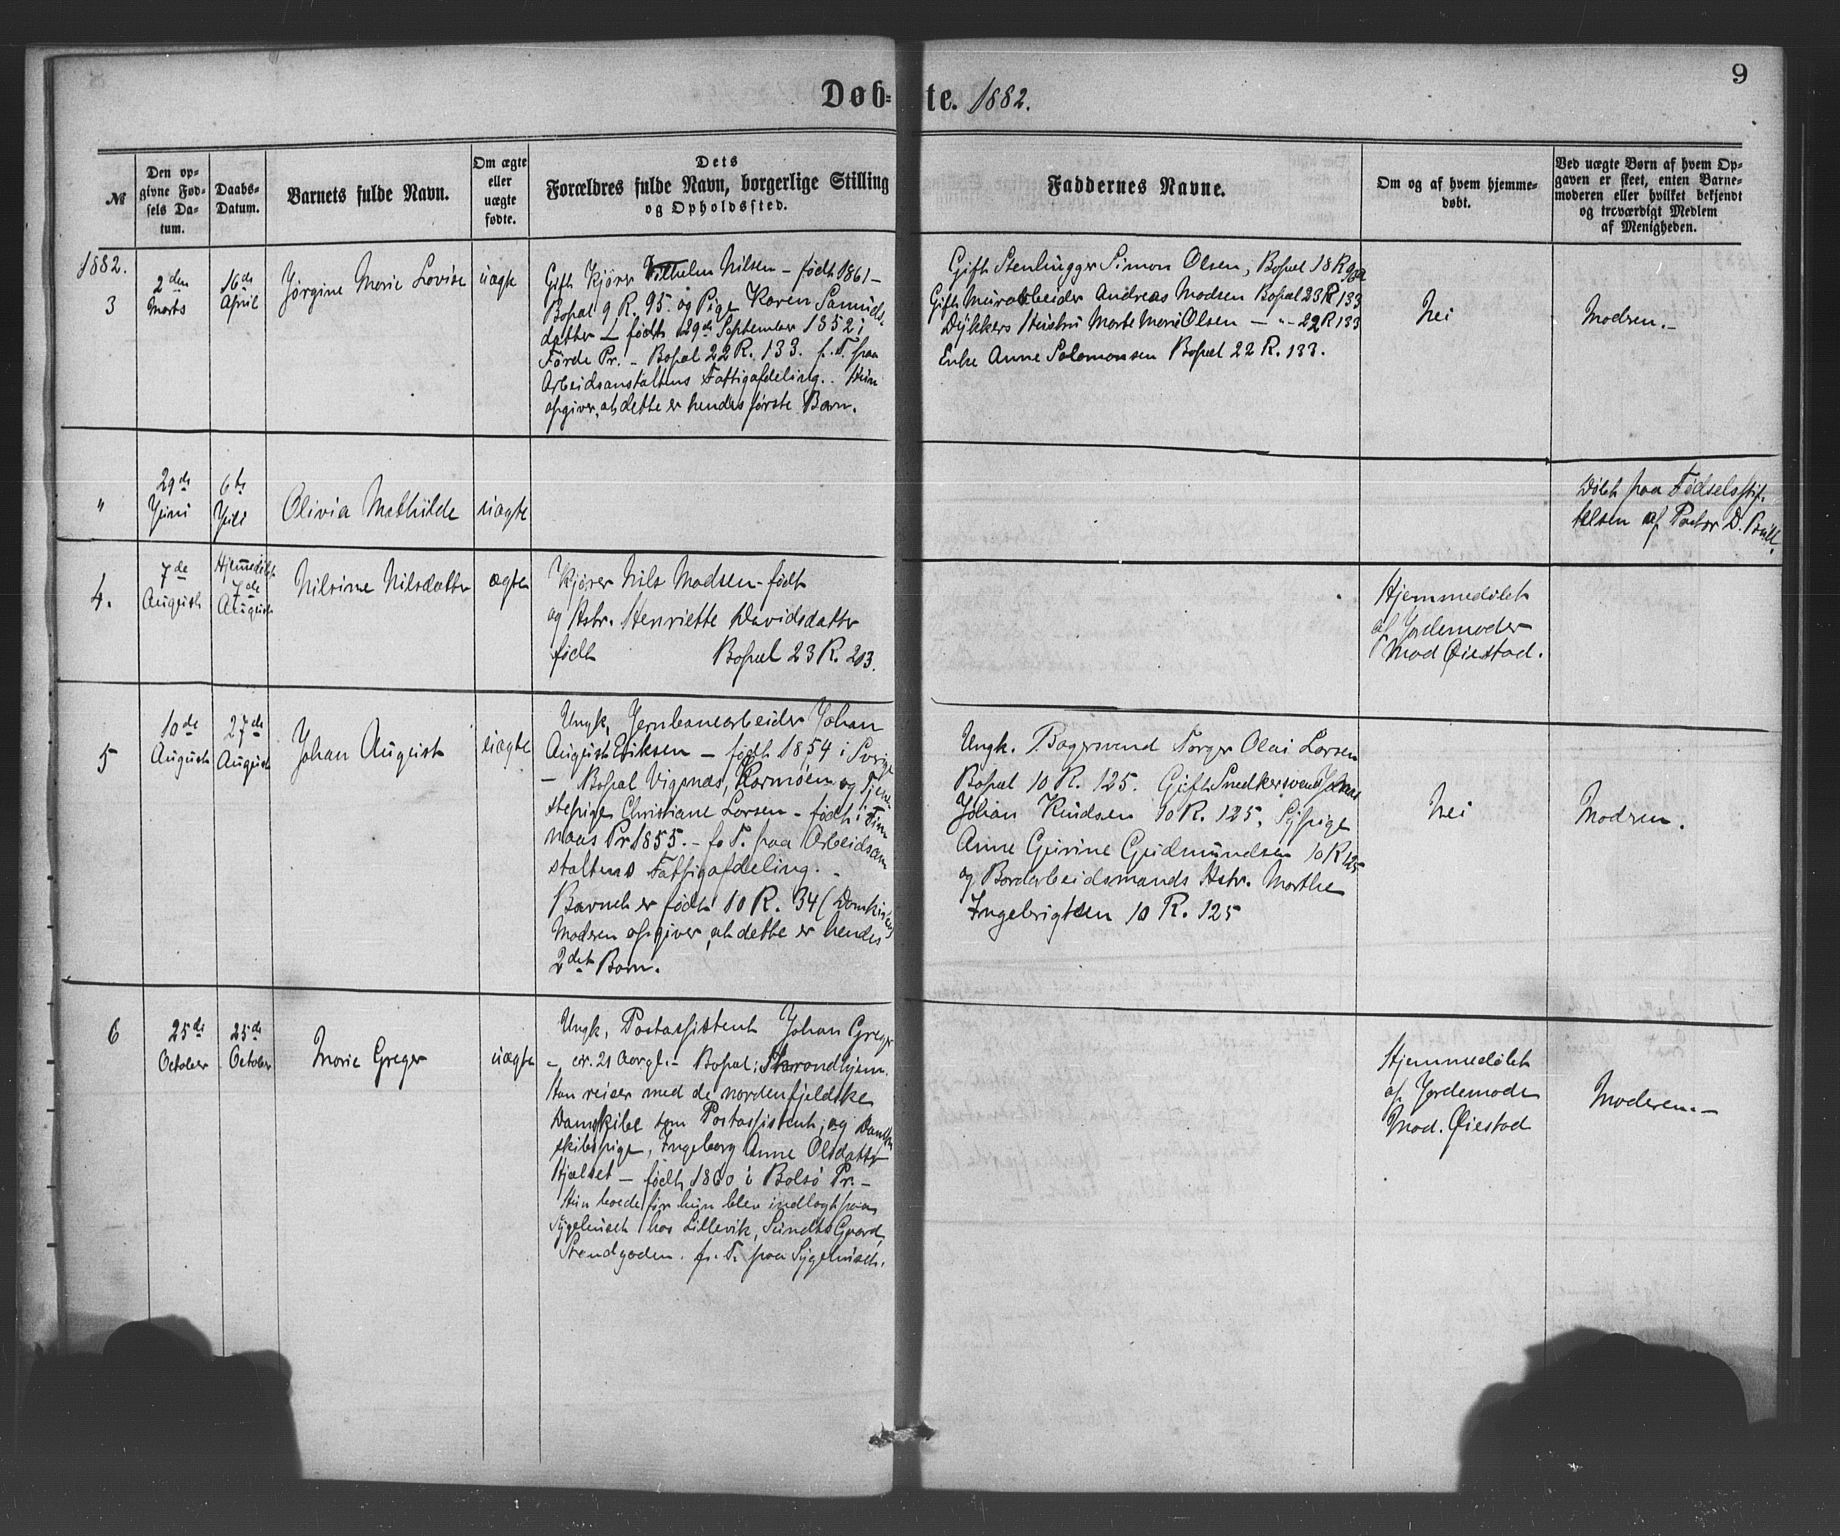 9
Døb- te. 1882.
№
Den op-
givne Fød-
sels Da-
tum.
Daabs-
Datum.
Barnets fulde Navn.
Om ægte
eller
uægte
fødte.
Dets
Forældres fulde Navn, borgerlige Stilling
og Opholdssted.
Faddernes Navne.
Om og af hvem hjemme-
døbt.
Ved uægte Børn af hvem Op-
gaven er skeet, enten Barne-
moderen eller hvilket bekjendt
og troværdigt Medlem
af Menigheden.
1882.
3
2den
Marts
16de
April
Jørgine Marie Lovise
uægte
Gift Kjører Vilhelm Nilsen – født 1861 –
Bopæl 9 R. 95. og Pige Karen Samuels-
datter – født 29de September 1852 i
Førde Pr. – Bopæl 22 R. 133. f. T. paa
Arbeidsanstaltens Fattigafdeling. Hun
opgiver, at dette er hendes første Barn.
Gift Stenhugger Simon Olsen, Bopæl 18 R
Gift Murarbeider Andreas Madsen Bopæl 23 R 133
Dykkers Hustru Marte Marie Olsen – " – 22 R 133
Enke Anne Salomonsen Bopæl 22 R. 133.
Nei
Modren. –
"
29de
Juni
6te
Juli
Olivia Mathilde
uægte
Døbt paa Fødselsstif-
telsen af Pastor D. Brüll.
4.
7de
August
Hjemmedøbt
7de
August
Nilsine Nilsdatter
ægte
Kjører Nils Madsen – født
og Hstr. Henriette Davidsdatter
født Bopæl 23 R. 203.
Hjemmedøbt
af Jordemoder
Mad Øiestad.
5
10de
August
27de
August
Johan August
uægte
Ungk. Jernbanearbeider Johan
August Eriksen – født 1854 i Sverige
– Bopæl Vigsnes, Karmøen og Tjene-
stepige Christiane Larsen – født i Fin
naas Pr. 1855. – f. T. paa Arbeidsan
staltens Fattigafdeling. –
Barnet er født 10 R. 34 (Domkirkens
Modren opgiver, at dette er hendes
2det Barn.
Ungk. Bagersvend Torger Olai Larsen
Bopæl 10 R. 125. Gift Snedkersvend Johas
Johan Knudsen 10 R. 125, Sypige
Anne Gurine Gudmundsen 10 R 125
og Bordarbeidsmands Hstr. Marthe
Ingebrigtsen 10 R. 125
Nei
Modren.
6
25de
October
25de
October
Marie Greger
uægte
Ungk. Postassistent Johan Greger
– cir. 21 Aar gl. – Bopæl: Tharondhjem.
Han reiser med de nordenfjeldske
Dampskibe som Postassistent, og Damp
skibspige, Ingeborg Anne Olsdatter
Hjelset – født 1860 i Bolsø Pr. –
Hun boede før hun blev indlagt paa
Sygehuset hos Lillevik, Sundts Gaard,
Strandgaden. f. T. paa Sygehuset.
Hjemmedøbt
af Jordemoder
Mad. Øiestad
Moderen. –